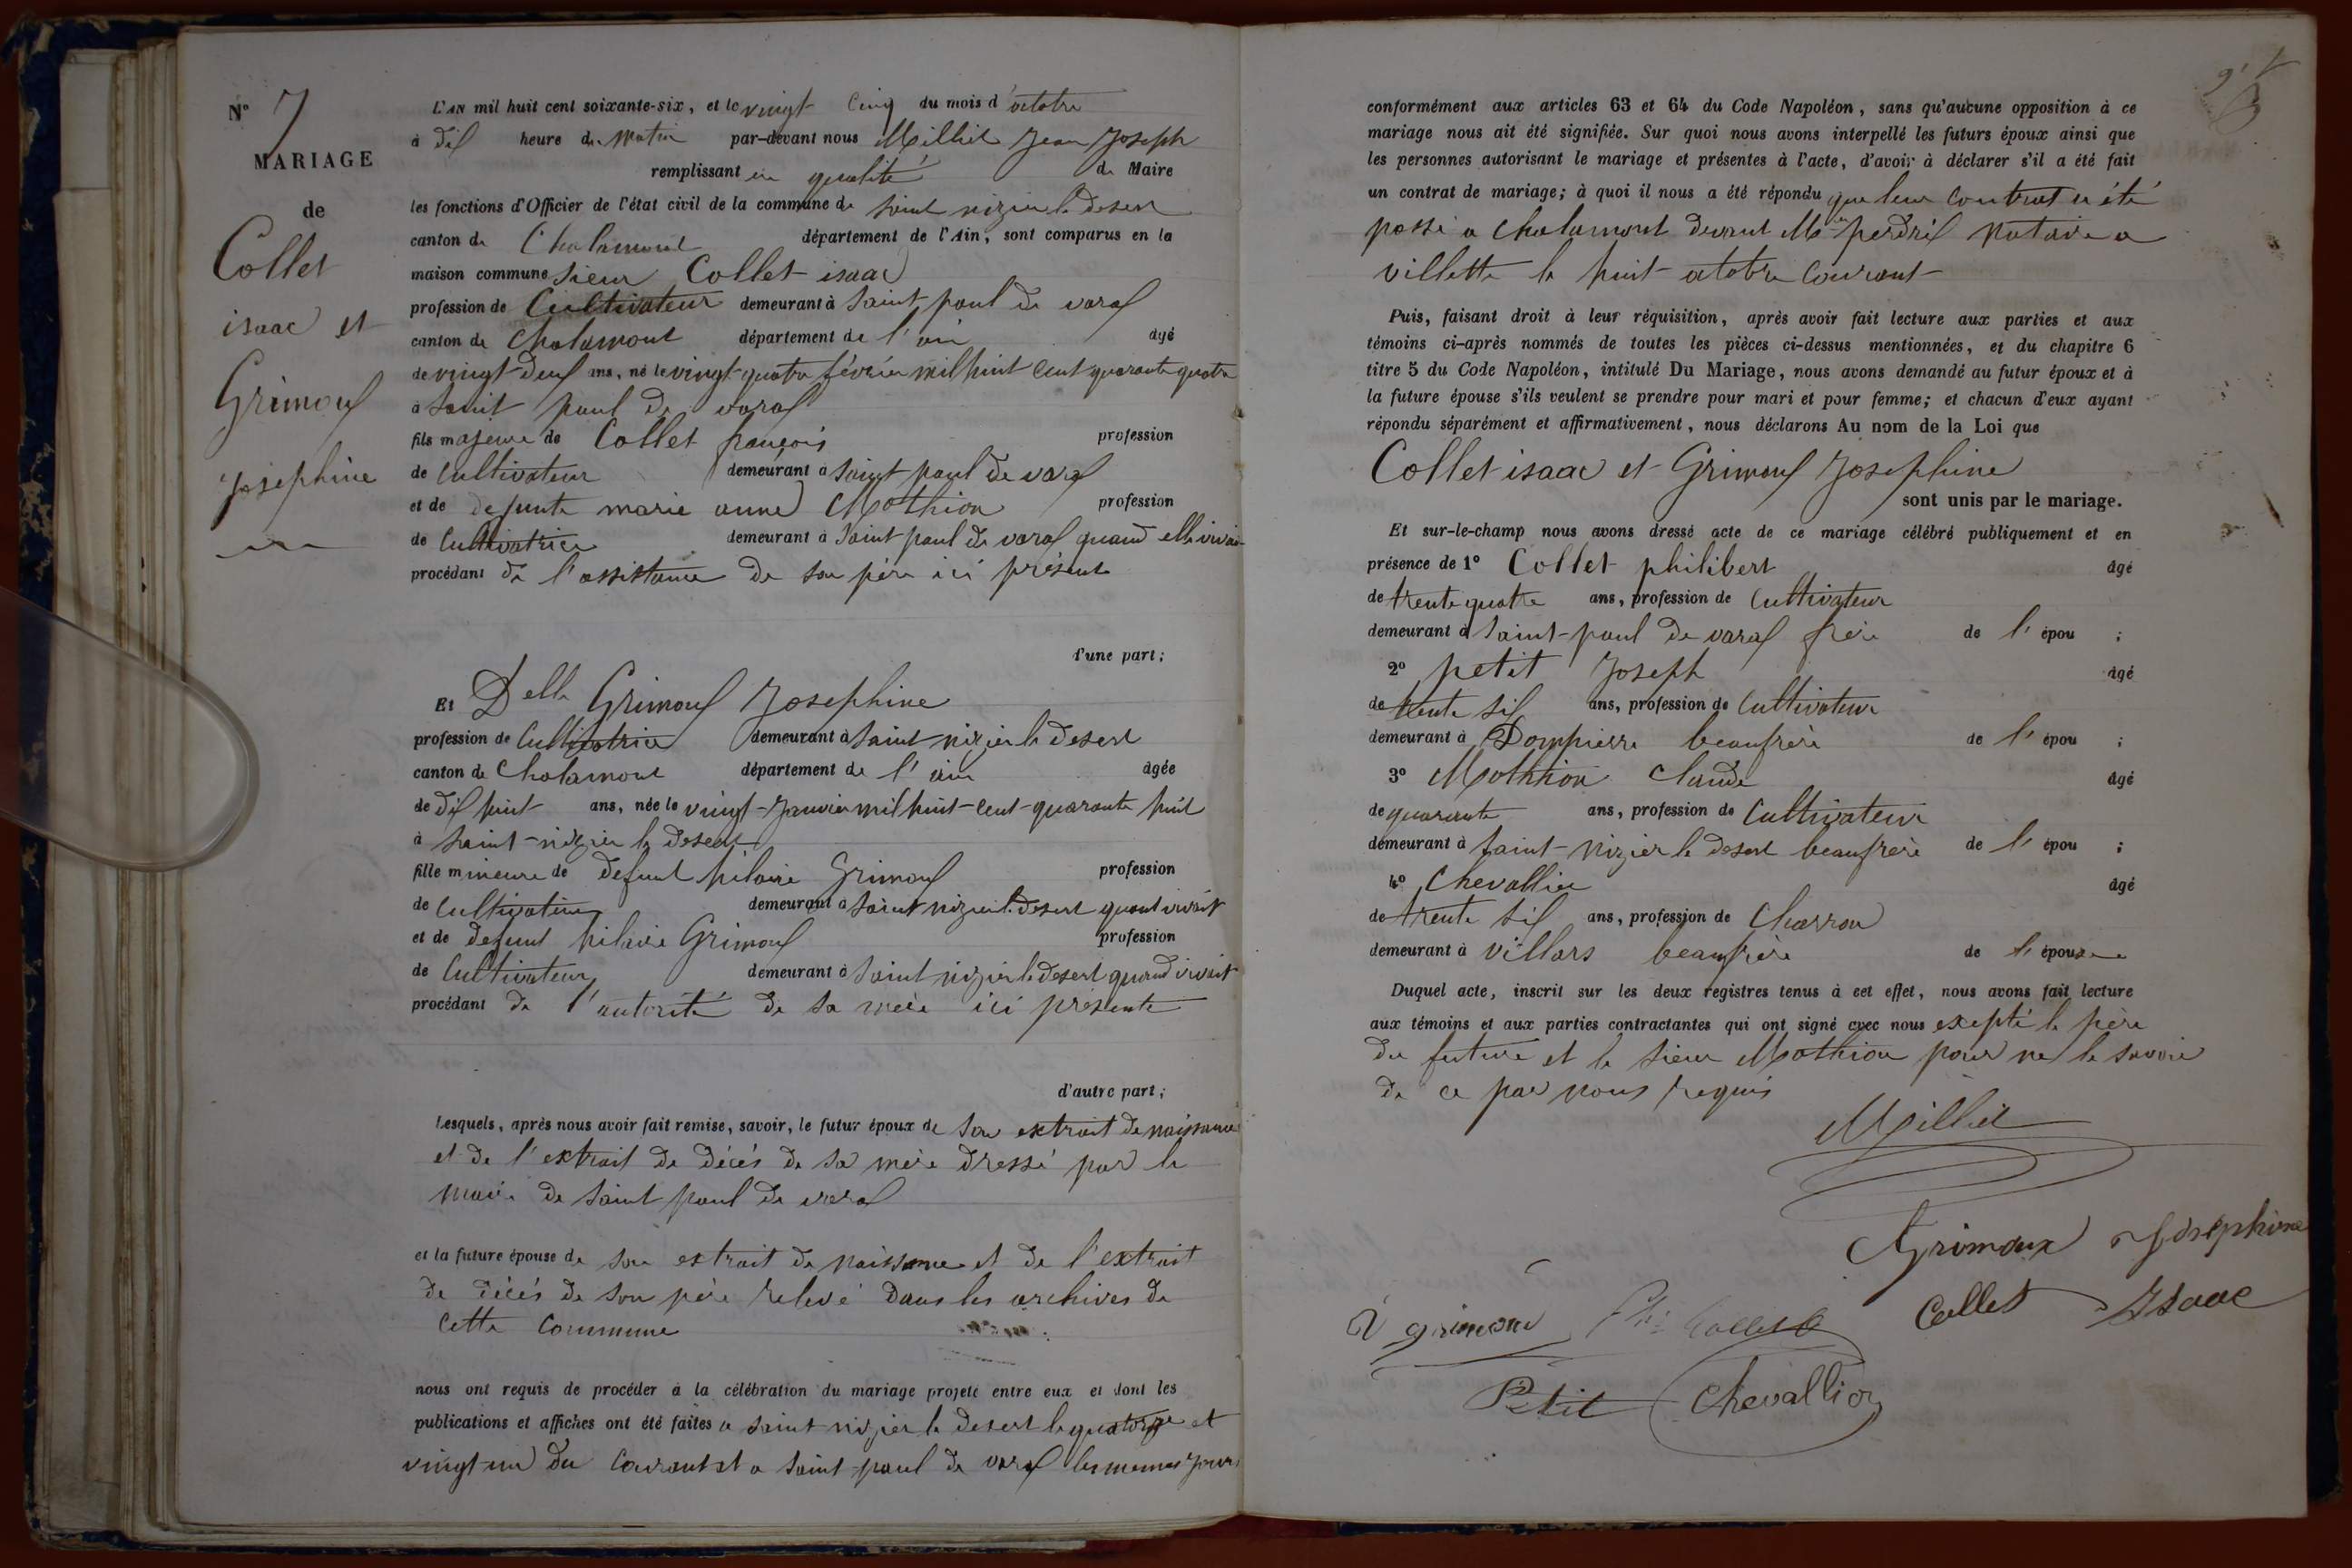 N° 7
MARIAGE
de
Collet
isaac et
Grimoux
Josephine
L'AN mil huit cent soixante-six, et le vingt Cinq du mois d'octobre
à dix heure du matin par-devant nous Milliet Jean Joseph
remplissant en qualité de Maire
les fonctions d'Officier de l'état civil de la commune de saint nizier le desert
canton de Chalamont département de l'Ain, sont comparus en la
maison commune sieur Collet isaac
profession de Cultivateur demeurant à saint paul de varax
canton de Chalamont département de l'ain âgé
de vingt deux ans, né le vingt quatre février mil huit cent quarante quatre
à saint paul de varax
fils majeur de Collet françois profession
de cultivateur demeurant à saint paul de varax
et de defunte marie anne Mothion profession
de Cultivatrice demeurant à saint paul de varax quand elle vivait
procédant de l'assistance de son père ici présent
d'une part;
Et Delle Grimoux Josephine
profession de Cultivatrice demeurant à saint nizier le desert
canton de Chalamont département de l'ain âgée
de dix huit ans, née le vingt Janvier mil huit cent quarante huit
à saint nizier le desert
fille mineure de defunt hilaire Grimoux profession
de cultivateur demeurant à saint nizier le desert quant vivait
et de defunt hilaire Grimoux profession
de Cultivateur demeurant à saint nizier le desert quand vivait
procédant de l'autorité de sa mère ici présente
d'autre part;
Lesquels, après nous avoir fait remise, savoir, le futur époux de son extrait de naissance
et de l'extrait de décés de sa mère dressé par le
maire de saint paul de varax
et la future épouse de son extrait de naissance et de l'extrait
de décés de son père relevé dans les archives de
cette Commune
nous ont requis de procéder à la célébration du mariage projeté entre eux et dont les
publications et affiches ont été faites a saint nizier le desert le quatorze et
vingt un du Courant et a saint paul de varax les memes jours
conformément aux articles 63 et 64 du Code Napoléon, sans qu'aucune opposition à ce
mariage nous ait été signifiée. Sur quoi nous avons interpellé les futurs époux ainsi que
les personnes autorisant le mariage et présentes à l'acte, d'avoir à déclarer s'il a été fait
un contrat de mariage; à quoi il nous a été répondu que leur contrat a été
passé a chalamont devant Me perdrix notaire a
villette le huit octobre Courant
Puis, faisant droit à leur réquisition, après avoir fait lecture aux parties et aux
témoins ci-après nommés de toutes les pièces ci-dessus mentionnées, et du chapitre 6
titre 5 du Code Napoléon, intitulé Du Mariage, nous avons demandé au futur époux et à
la future épouse s'ils veulent se prendre pour mari et pour femme; et chacun d'eux ayant
répondu séparément et affirmativement, nous déclarons Au nom de la Loi que
Collet isaac et Grimoux Josephine
sont unis par le mariage.
Et sur-le-champ nous avons dressé acte de ce mariage célébré publiquement et en
présence de 1° Collet philibert âgé
de trente quatre ans, profession de Cultivateur
demeurant à saint-paul de varax frère de l'épou ;
2° petit Joseph âgé
de trente six ans, profession de Cultivateur
demeurant à Dompierre beaufrère de l'épou ;
3° Mothion Claude âgé
de quarante ans, profession de Cultivateur
demeurant à saint-nizier le desert beaufrère de l'épou ;
4° Chevallier âgé
de trente six ans, profession de Charron
demeurant à villars beaufrère de l'épouse
Duquel acte, inscrit sur les deux registres tenus à cet effet, nous avons fait lecture
aux témoins et aux parties contractantes qui ont signé avec nous excepté le père
du future et le sieur Mothion pour ne le savoir
de ce par nous requis
Milliet
Grimoux Josephine
Collet Isaac
Collet
Petit Chevallier